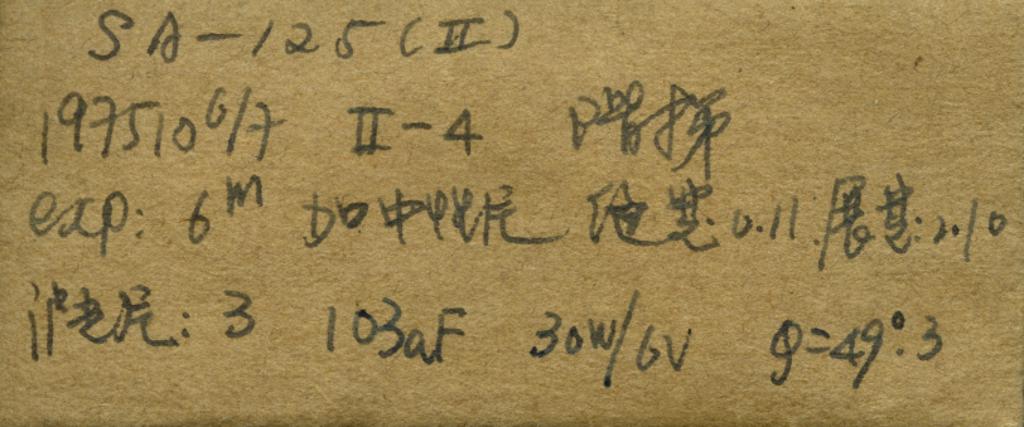 SA-125(II)
19751006/7 II-4 阶梯
exp: 6m 加中性片 缝宽:0.11 展宽:2.10
滤光片: 3 103aF 30W/6V φ=49°.3